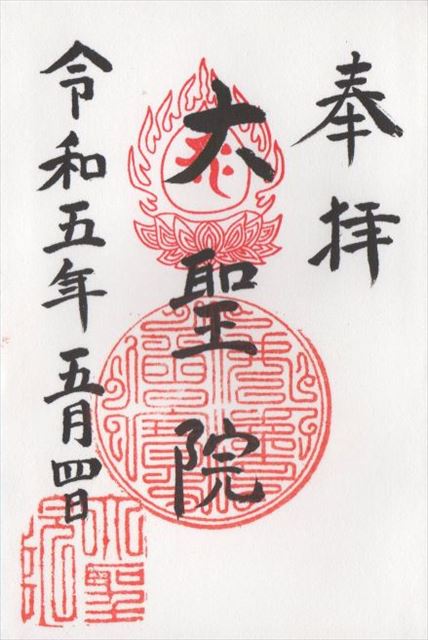 奉拝
大聖院
令和五年五月四日